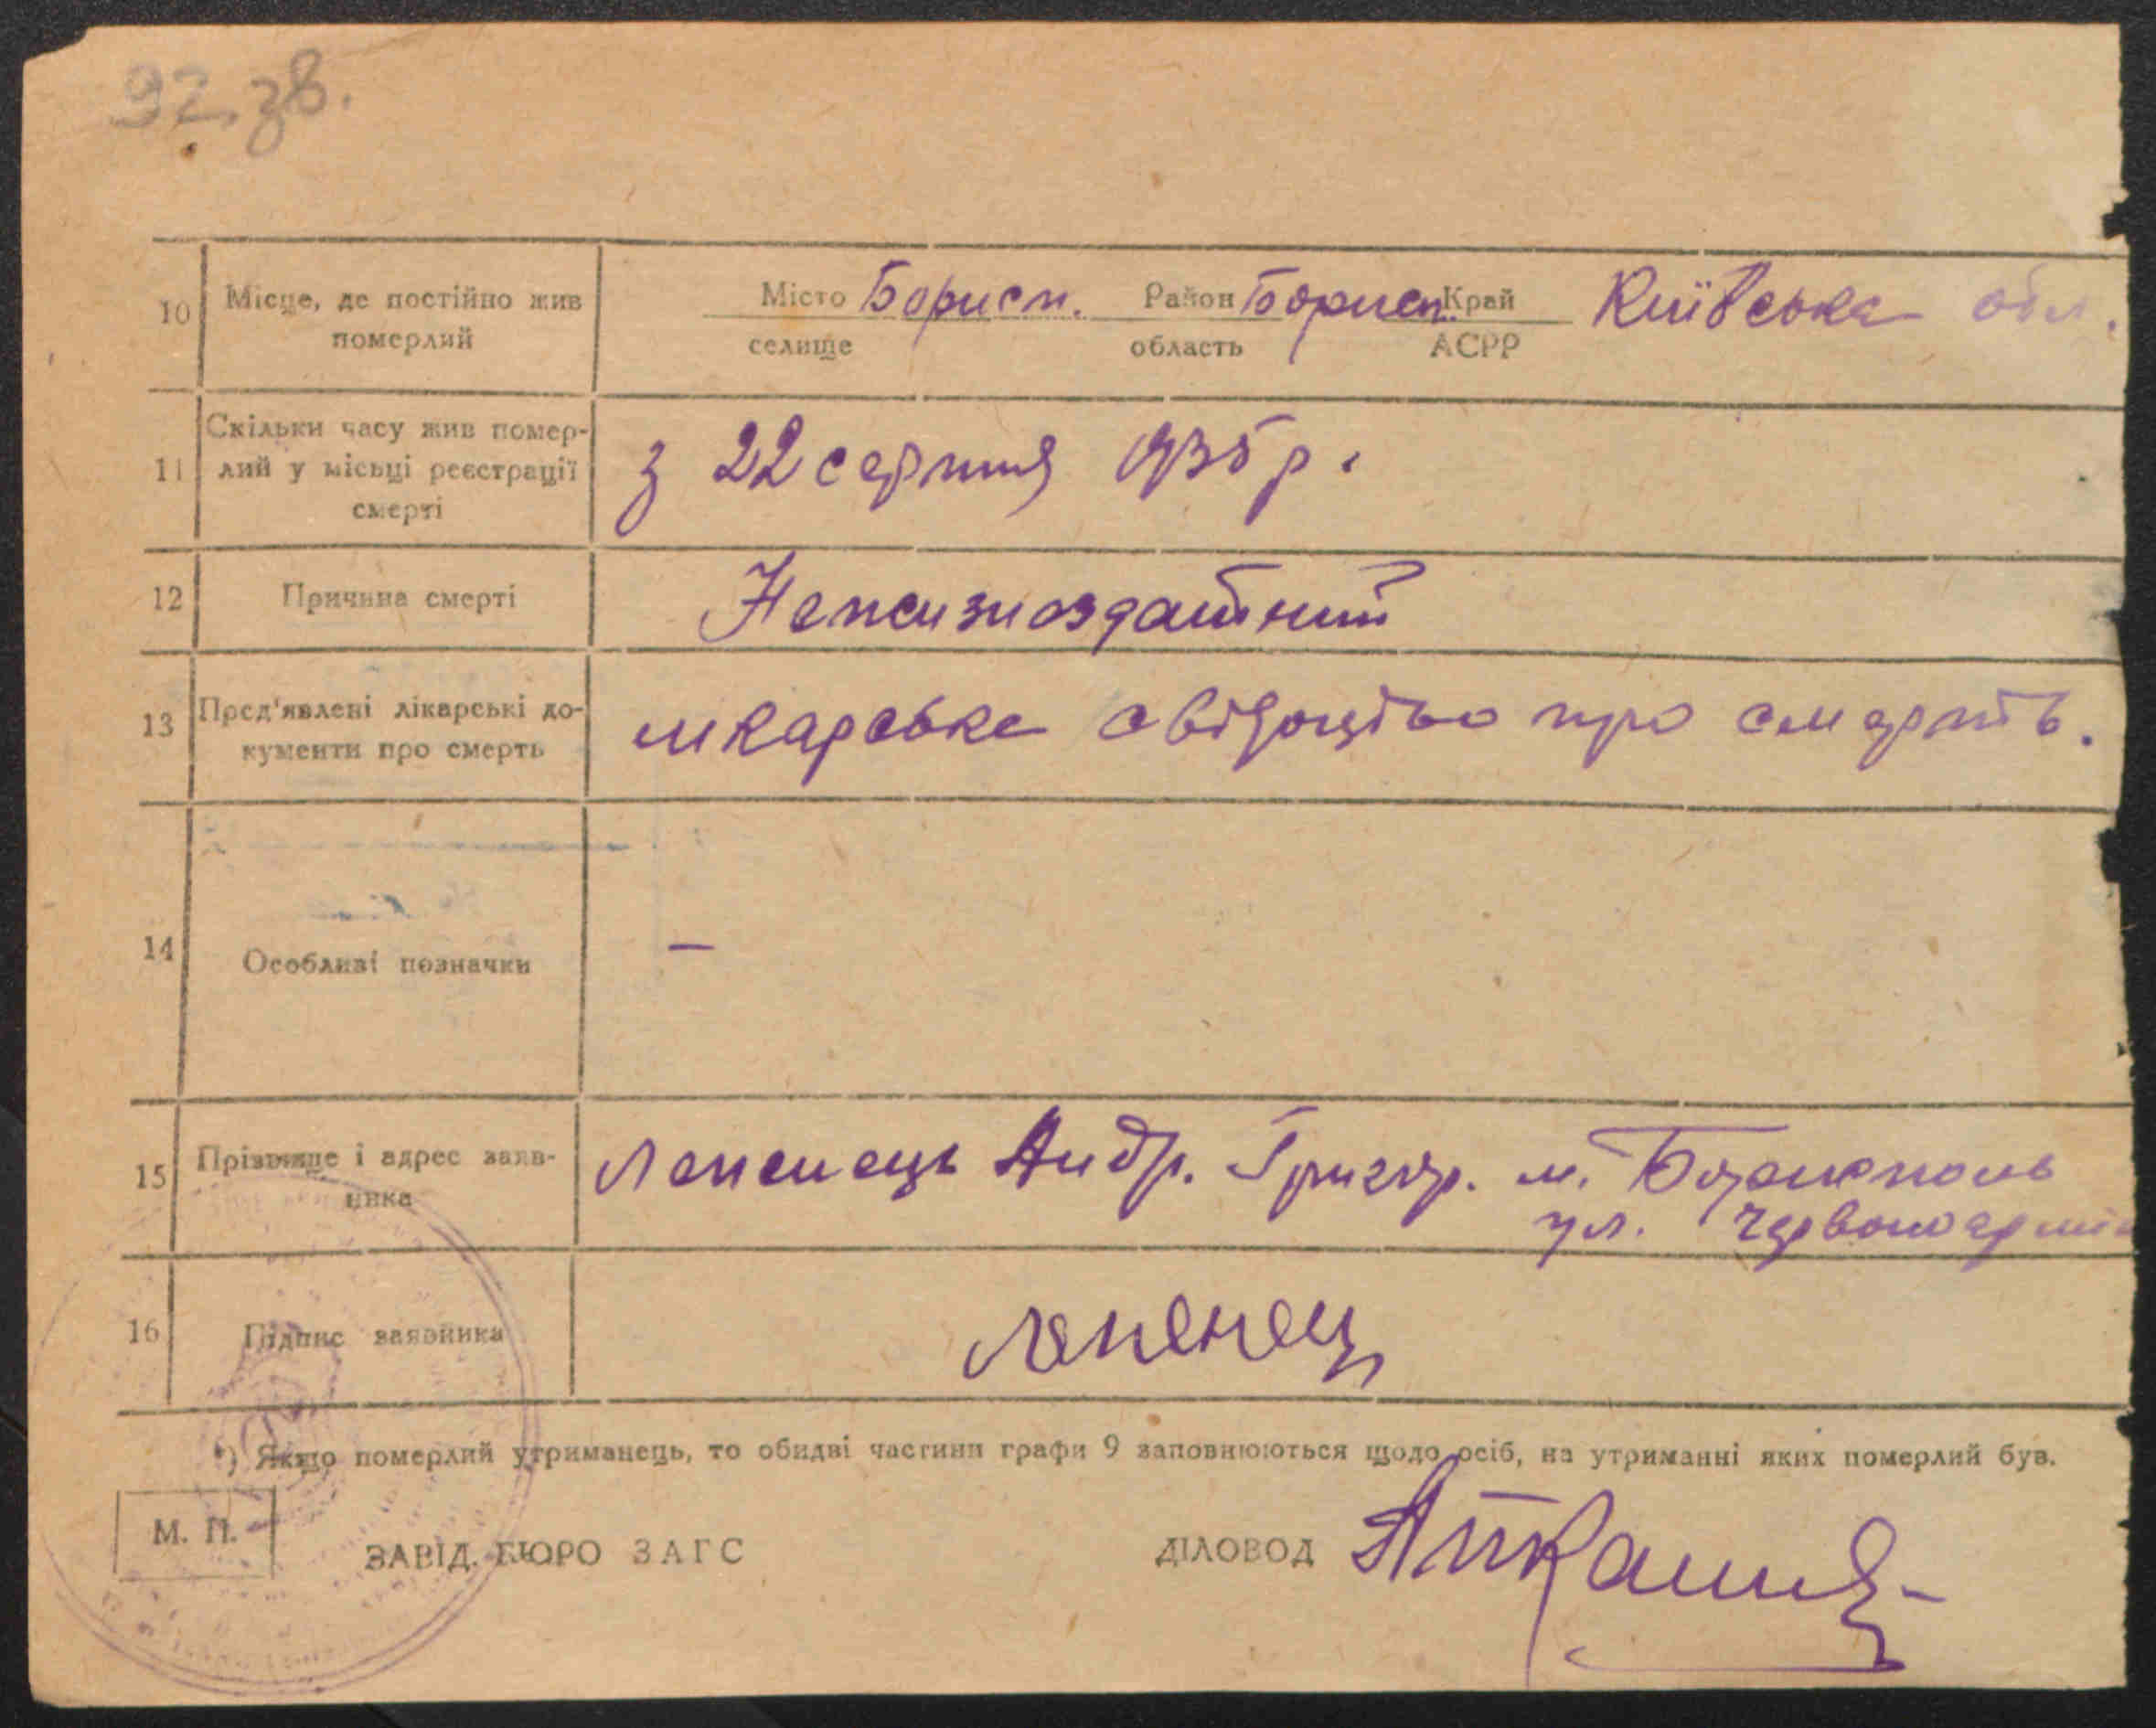 92.зв.
10 Місце, де постійно жив Місто Борисп. Район Борисп. Край Київська обл.
померлий селище область АСРР
Скільки часу жив помер-
11 лий у місьці реєстрації з 22 серпня 1935 р.
смерті
12 Причина смерті Нежизноздатний
13 Пред'явлені лікарські до- лікарське свідоцтво про смерть.
кументи про смерть
14 Особливі позначки –
15 Прізвище і адрес заяв- Андр. Григор. м. Бориспіль
ника ул. Червоноармій
16 Підпис заявника
*) Якщо померлий утриманець, то обидві частини графи 9 заповнюються щодо осіб, на утриманні яких померлий був.
М. П.
ЗАВІД. БЮРО ЗАГС ДІЛОВОД